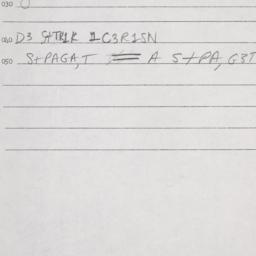 030
040 D3 S+TR1K 1C3R1SN
050 S+PAGA,T = A S+PA,G3T